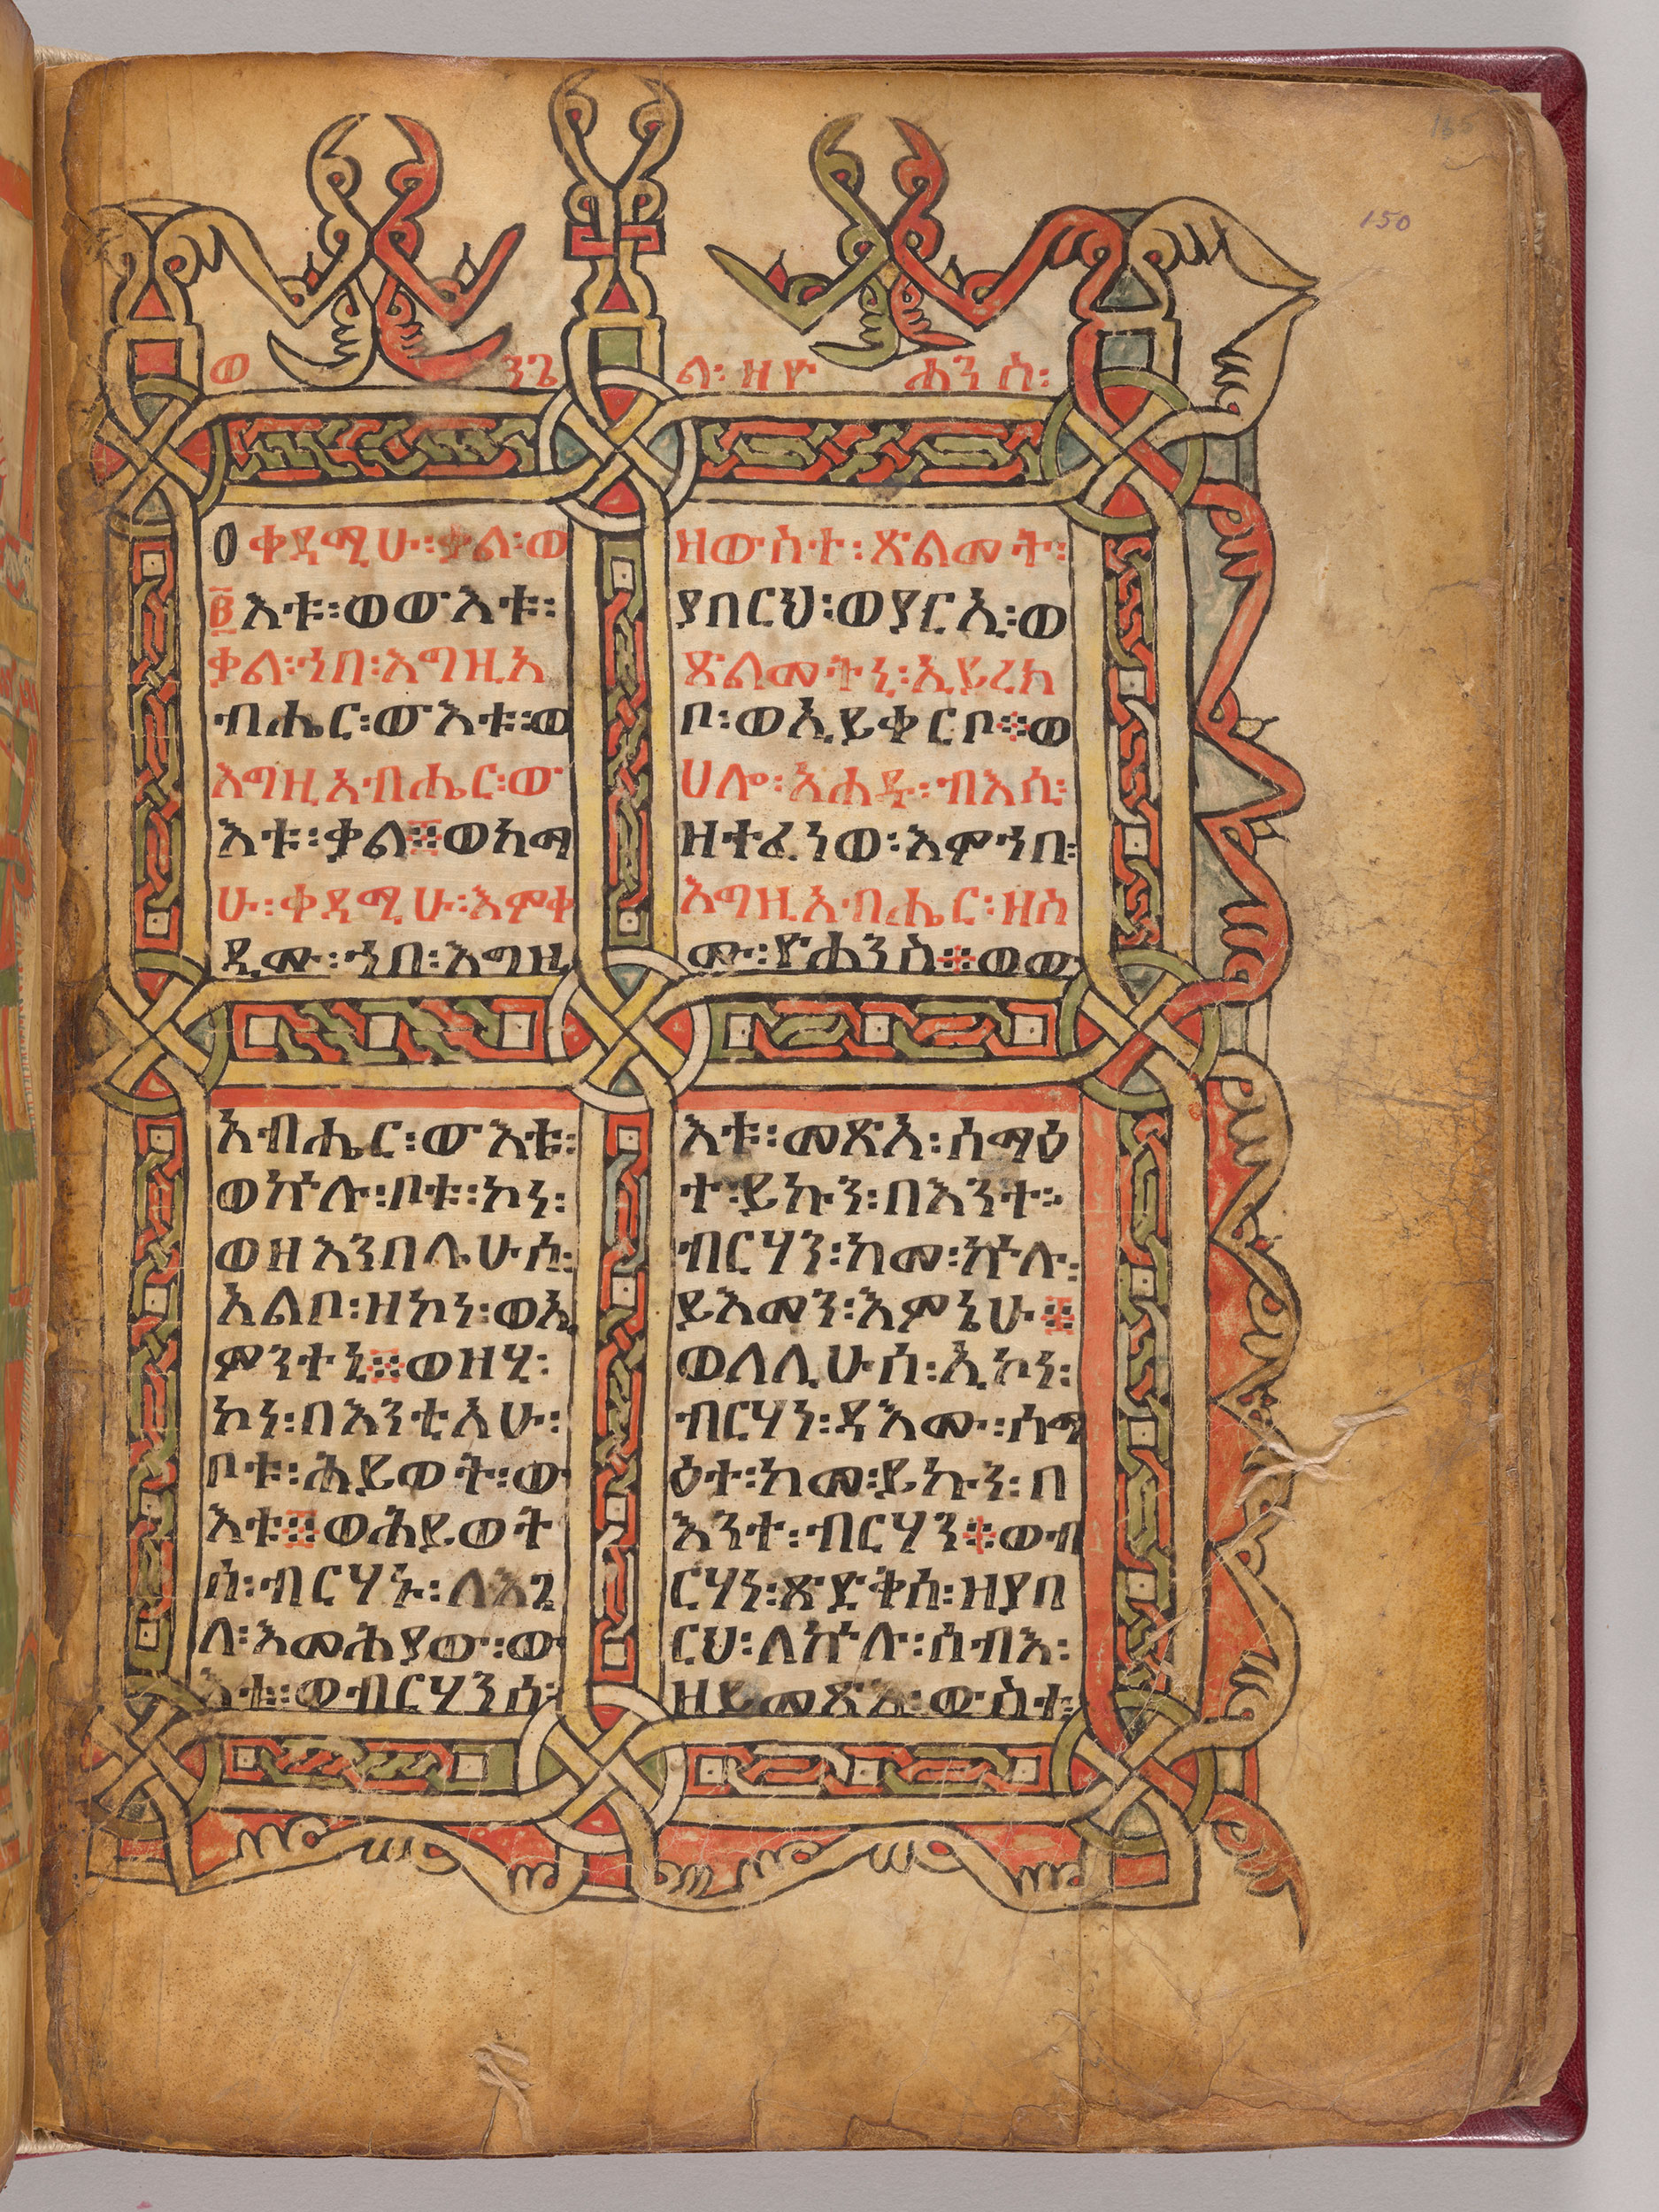 165
150
ወ ንጌ ል፡ ዘዮ ሐንስ፡
፩ ቀዳሚሁ፡ ቃል፡ ወ
እቱ፡ ወውእቱ፡
ቃል፡ ኀበ፡ እግዚአ
ብሔር፡ ውእቱ፡ ወ
እግዚአብሔር፡ ው
እቱ፡ ቃል፨ ወከማ
ሁ፡ ቀዳሚሁ፡ እምቀ
ዲሙ፡ ኀበ፡ እግዚ
አብሔር፡ ውእቱ፡
ወኵሉ፡ ቦቱ፡ ኮነ፡
ወዘእንበሌሁሰ፡
አልቦ፡ ዘኮነ፡ ወኢ
ምንተኒ፨ ወዘሂ፡
ኮነ፡ በእንቲአሁ፡
ቦቱ፡ ሕይወት፡ ው
እቱ፨ ወሕይወት
ሰ፡ ብርሃኑ፡ ለእጓ
ለ፡ እመሕያው፡ ው
እቱ፡ ወብርሃንሰ፡
ዘውስተ፡ ጽልመት፡
ያበርህ፡ ወያርኢ፡ ወ
ጽልመትኒ፡ ኢይረክ
ቦ፡ ወኢይቀርቦ፨ ወ
ሀሎ፡ አሐዱ፡ ብእሲ፡
ዘተፈነወ፡ እምኀበ፡
እግዚአብሔር፡ ዘስ
ሙ፡ ዮሐንስ፨ ወው
እቱ፡ መጽአ፡ ሰማዕ
ተ፡ ይኩን፡ በእንተ፡
ብርሃን፡ ከመ፡ ኵሉ፡
ይእመን፡ እምኔሁ፨
ወለሊሁሰ፡ ኢኮነ፡
ብርሃነ፡ ዳእሙ፡ ሰማ
ዕተ፡ ከመ፡ ይኩን፡ በ
እንተ፡ ብርሃን፨ ወብ
ርሃነ፡ ጽድቅሰ፡ ዘያበ
ርህ፡ ለኵሉ፡ ሰብእ፡
ዘይመጽእ፡ ውስተ፡